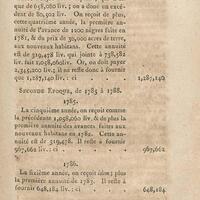 que de 658,080 liv. ; on a donc un excé-
dent de 80,502 liv. On reçoit de plus,
cette quatrième année, la première an-
nuité de l'avance de 1200 nègres faite en
1781, & du prix de 30,000 acres de terre,
aux nouveaux habitans. Cette annuité
est de 319,478 liv. qui jointe à 738,582
liv. font 1,058,060 liv. Or, on doit payer
1,345,200 liv. ; il ne reste donc à fournir
que 1,287,140 liv. : ci . . . 1,287,140
SECONDE EPOQUE, de 1785 à 1788.
1785.
La cinquième année, on reçoit comme
la précédente 1,058,060 liv. & de plus la
première annuité des avances faites aux
nouveaux habitans en 1782. Cette an-
nuité est de 319,478 liv. Il reste donc à
fournir
967,662 liv. : ci . . . 967,662
1786.
La sixième année, on reçoit idem ; plus
la première annuité de 1783. Il reste à
fournir 648,184 liv. : ci . . . 648,184